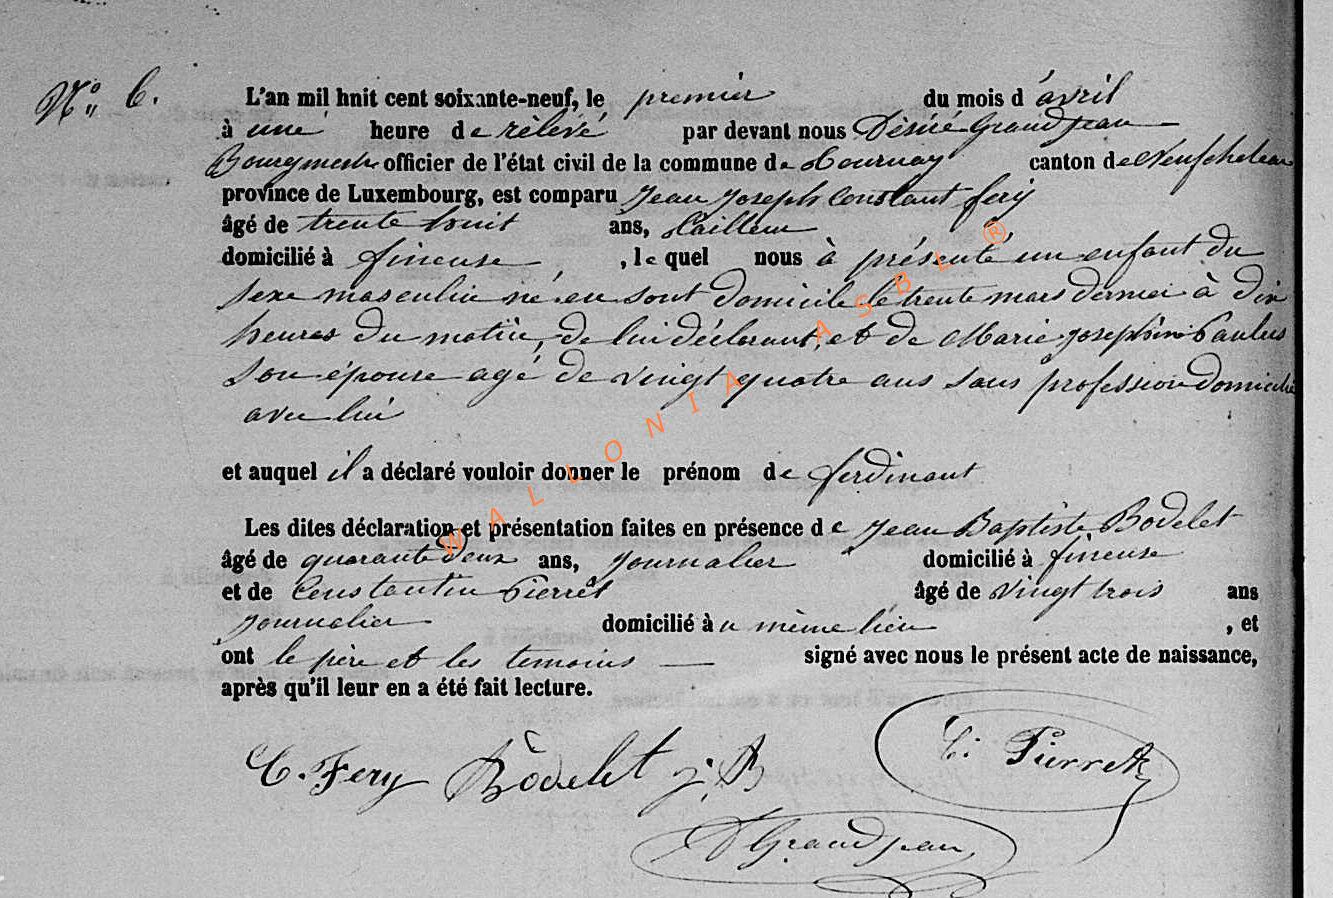 N° 6.
L'an mil hnit cent soixante-neuf, le premier du mois d'avril
à une heure de rèlévé par devant nous Désiré Grandjean
Bourgmestre officier de l'état civil de la commune de Tournay canton de Neufchateau
province de Luxembourg, est comparu Jean Joseph Constant fery
âgé de trente huit ans, tailleur
domicilié à fineuse, le quel nous à présenté un enfant du
sexe masculin né en sont domicile le trente mars dernier à dix
heures du matin, de lui déclarant, et de Marie Josephine Paulus
son épouse agé de vingt quatre ans sans profession domicilié
avec lui
et auquel il a déclaré vouloir donner le prénom de ferdinant
Les dites déclaration et présentation faites en présence de Jean Baptiste Bodelet
âgé de quarante deux ans, journalier domicilié à fineuse
et de Constantin Pierrêt âgé de vingt trois ans
journalier domicilié à u même lieu, et
ont le père et les temoins signé avec nous le présent acte de naissance,
après qu'il leur en a été fait lecture.
C. Fery Bodelet j. B C. Pierret
D Grandjean
WALLONIA ASBL ®